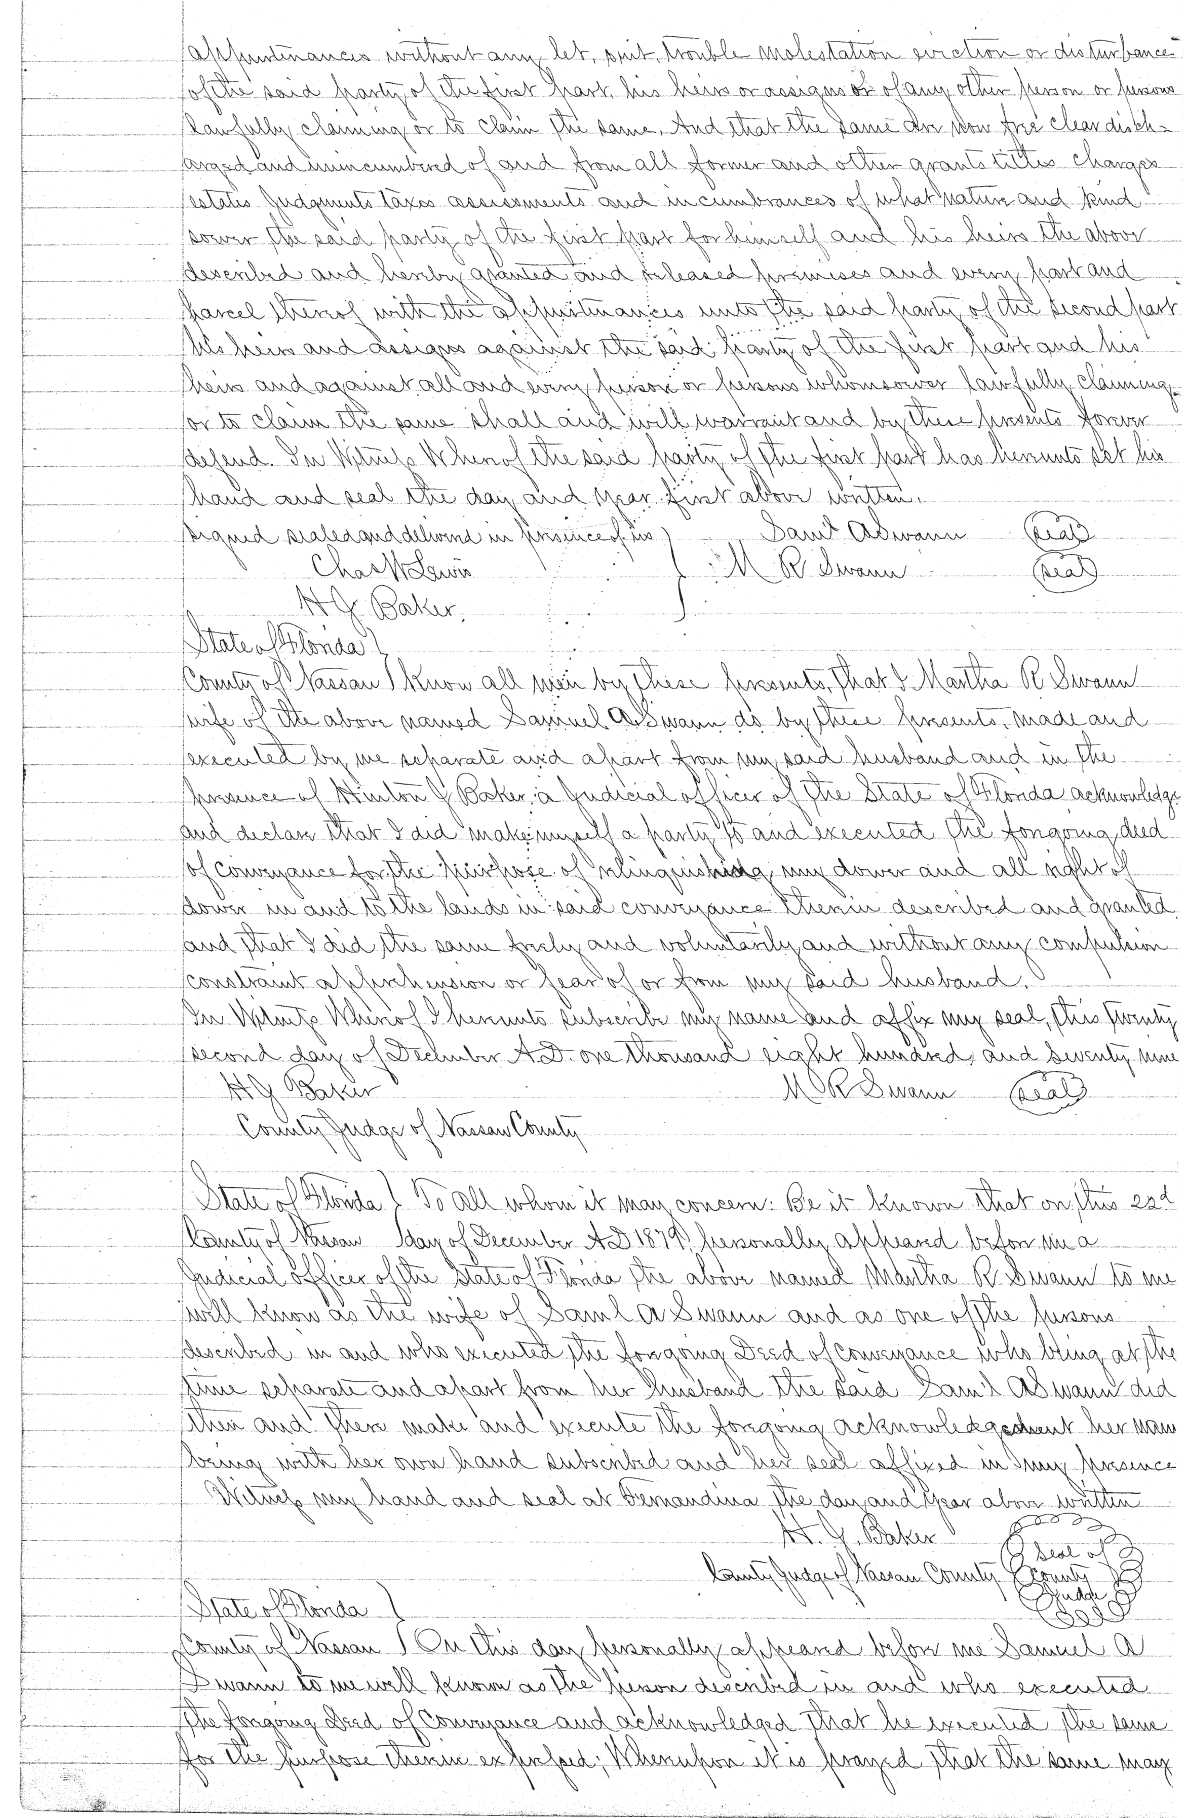 appurtenances without any let, suit, trouble molestation eviction or disturbance
of the said party of the first part, his heirs or assigns or of any other person or persons
lawfully claiming or to claim the same, And that the same are now free clear disch-
arged and unincumbered of and from all former and other grants titles charges
estates Judgments taxes assessments and incumbrances of what nature and kind
soever the said party of the first part for himself and his heirs the above
described and hereby granted and released premises and every part and
parcel thereof with the appurtenances unto the said party of the second part
his heirs and assigns against the said party of the first part and his
heirs and against all and every person or persons whomsoever lawfully claiming
or to claim the same shall and will warrant and by these presents forever
defend. In Witness Whereof the said party of the first part has hereunto set his
hand and seal the day and year first above written.
Signed sealed and delivered in presence of us } Saml A Swann (seal)
Chas W Lewis } M R Swann (seal)
H J Baker.
State of Florida }
County of Nassau } Know all men by these presents, that I Martha R Swann
wife of the above named Samuel A Swann do by these presents, made and
executed by me separate and apart from my said husband and in the
presence of Hinton J Baker, a Judicial officer of the State of Florida acknowledge
and declare that I did make myself a party to and executed the forgoing deed
of conveyance for the purpose of relinquishing my dower and all right of
dower in and to the lands in said conveyance therein described and granted
and that I did the same freely and voluntarily and without any compulsion
constraint apprehension or fear of or from my said husband.
In Witness Whereof I hereunto subscribe my name and affix my seal, this twenty
second day of December A.D. one thousand eight hundred and seventy nine
H J Baker M R Swann (seal)
County Judge of Nassau County
State of Florida } To all whom it may concern: Be it known that on this 22d
County of Nassau day of December AD 1879 personally appeared before me a
Judicial officer of the State of Florida the above named Martha R Swann to me
well know as the wife of Saml A Swann and as one of the persons
described in and who executed the forgoing Deed of Conveyance who being at the
time separate and apart from her husband the said Saml A Swann did
then and there make and execute the foregoing acknowledgement her name
being with her own hand subscribed and her seal affixed in my presence
Witness my hand and seal at Fernandina the day and year above written
H. J. Baker
County Judge of Nassau County
Seal of
County
Judge
State of Florida }
County of Nassau } On this day personally appeared before me Samuel A
Swann to me well known as the person described in and who executed
the forgoing Deed of Conveyance and acknowledged that he executed the same
for the purpose therein expressed; Whereupon it is prayed that the same may